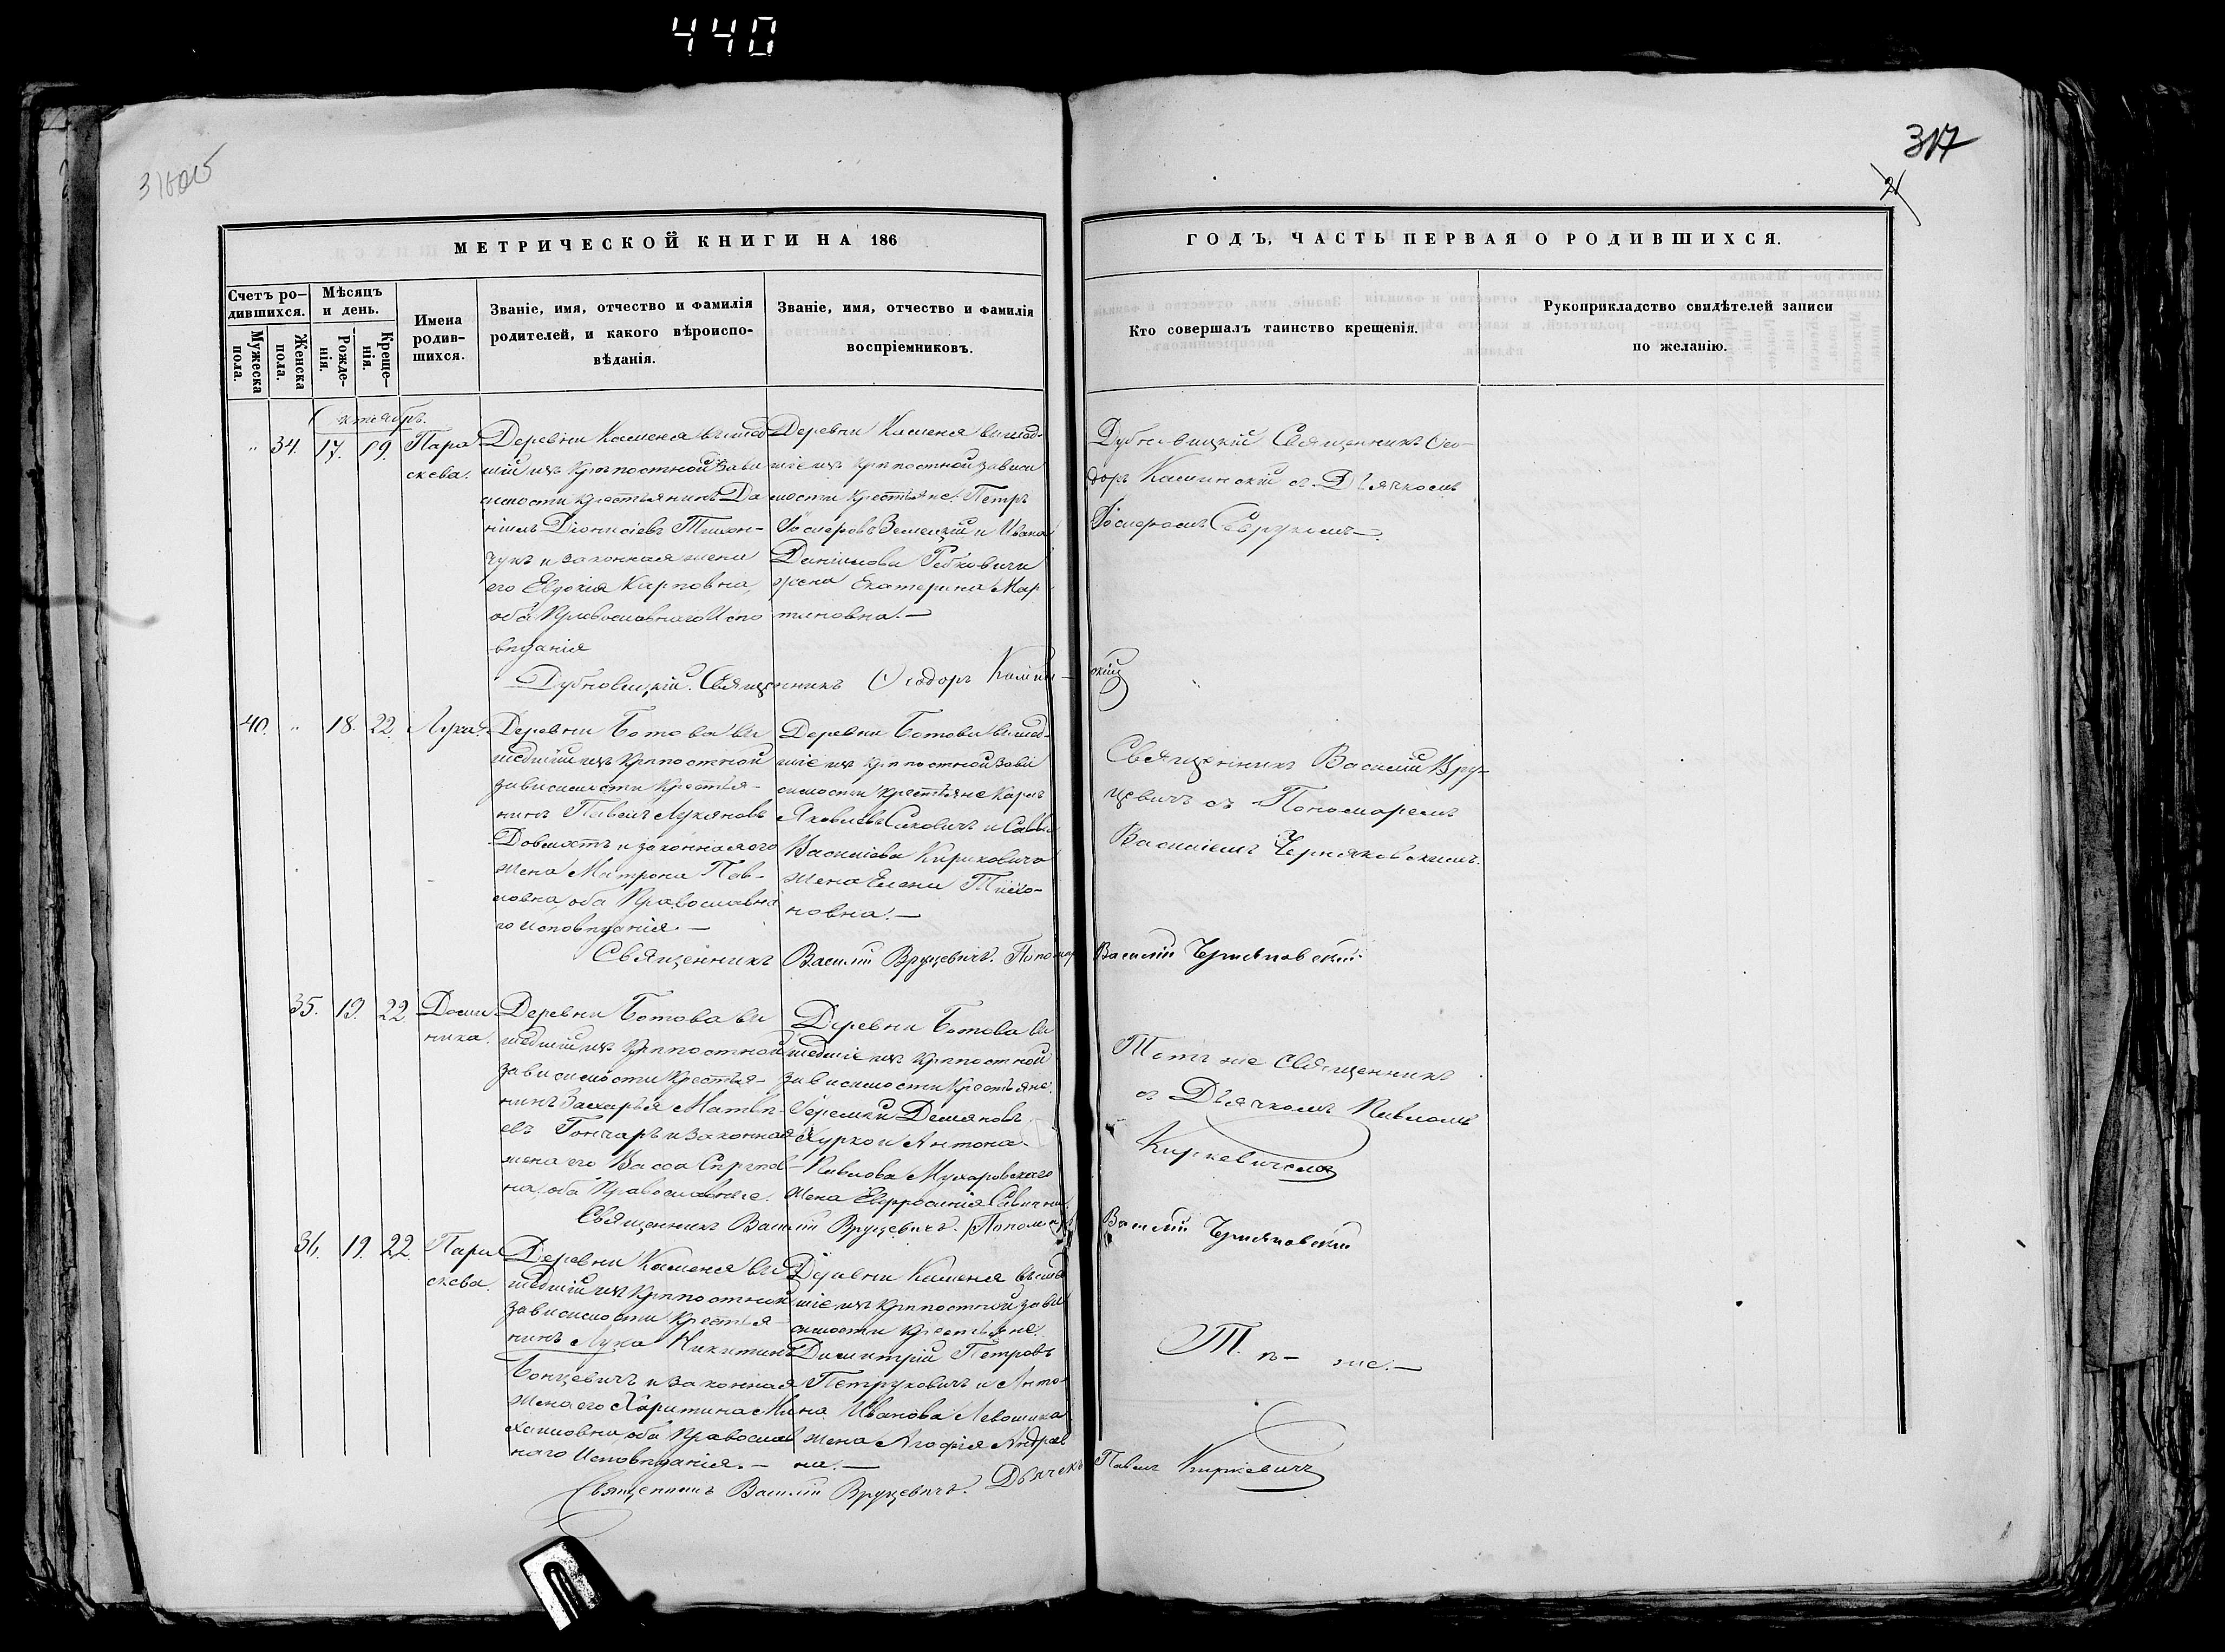 440
317
МЕТРИЧЕСКОЙ КНИГИ НА 186
ГОДЪ, ЧАСТЬ ПЕРВАЯ О РОДИВШИХСЯ.
Счетъ ро-
дившихся.
Мужеска
пола.
Женска
пола.
Мѣсяцъ
и день.
Рожде-
нія.
Креще-
нія.
Имена
родив-
шихся.
Званіе, имя, отчество и фамилія
родителей, и какого вѣроиспо-
вѣданія.
Званіе, имя, отчество и фамилія
воспріемниковъ.
Кто совершалъ таинство крещенія.
Рукоприкладство свидѣтелей записи
по желанію.
Октябрь.
" 34. 17. 19. Пара
скева.
Деревни Каменя вышед
шій изъ крѣпостной зави
симости крестьянинъ Да
ніилъ Діонисіевъ
чукъ и законная жена
его Евдокія Карповна,
оба Православнаго Испо
вѣданія
Деревни Каменя вышед-
шіе изъ крѣпостной зависи
мости крестьяне: Петръ
и Ивана
Даниилова
жена Екатерина Мар
тиновна.—
Священникъ Ѳео-
доръ Каминскій съ Дьячкомъ
Священникъ Ѳеодоръ Камин-
скій
40. " 18. 22. Лука.
Деревни Ботова вы
шедшій изъ крѣпостной
зависимости крестья-
нинъ Павелъ Лукяновъ
и законная его
жена Матрона Пав-
ловна, оба Православна
го исповѣданія.—
Деревни Ботова вышед-
шіе изъ крѣпостной зави
симости крестьяне Карпъ
Яковлевъ и Саввы
Василіева Кириковича
жена Елена Тихо-
новна.—
Священникъ Василій Вру-
цевичъ съ Пономаремъ
Василіемъ Черняковскимъ.
Священникъ Василій Вруцевичъ. Пономар
Василій Черняковскій
35. 19. 22 Доми
ника.
Деревни Ботова вы
шедшій изъ крѣпостной
зависимости крестья-
нинъ Захарья Матвѣ-
евъ Гончаръ и законная
жена его Васса Сергѣев-
на, оба Православные.
Деревни Ботова вы
шедшіе изъ крѣпостной
зависимости крестьяне:
Демяновъ
и Антона
Павлова Мухаровскаго
жена Евфросинія Савична
Тотъ же священникъ
съ Дьячкомъ Павломъ
Киркевичемъ
Священникъ Василій Вруцевичъ. Пономарь
Василій Черняковскій
36. 19. 22. Пара
скева.
Деревни Каменя вы
шедшій изъ крѣпостной
зависимости крестья-
нинъ Лука Никитинъ
Бонцевичъ и законная
жена его Харитина Ми
хайловна, оба православ
наго Исповѣданія.—
Деревни Каменя вышед
шіе изъ крѣпостной зави
симости крестьяне:
Димитрій Петровъ
Петруковичъ и Анто
на Иванова
жена Агафія Андреев
на.—
Т. ѣ — же.—
Священникъ Василій Вруцевичъ. Дьячекъ
Павелъ Киркевичъ